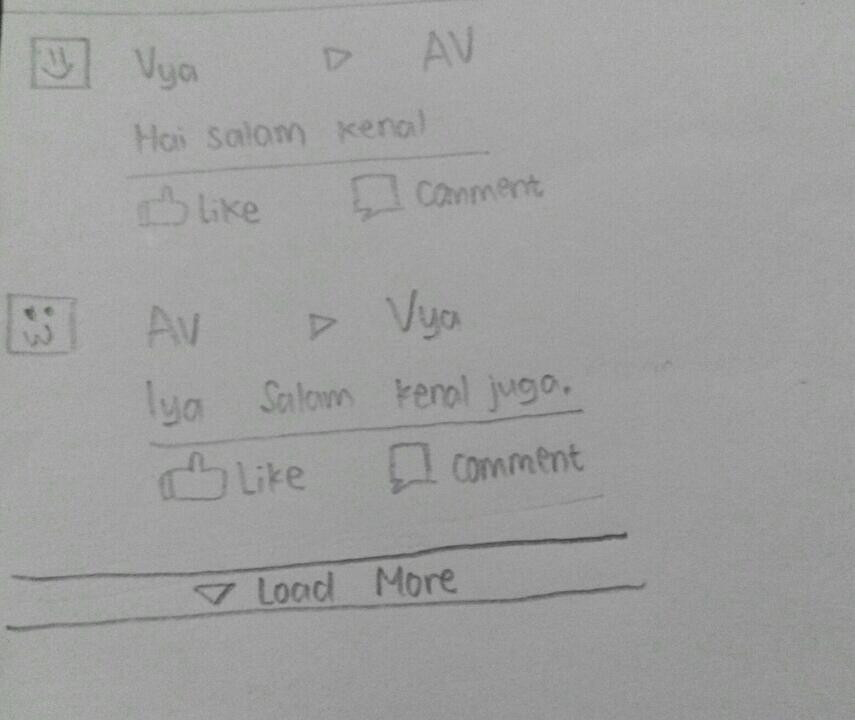 Vya ▷ AV
Hai salam kenal
Like comment
AV ▷ Vya
Iya Salam kenal juga.
Like comment
▽ Load More